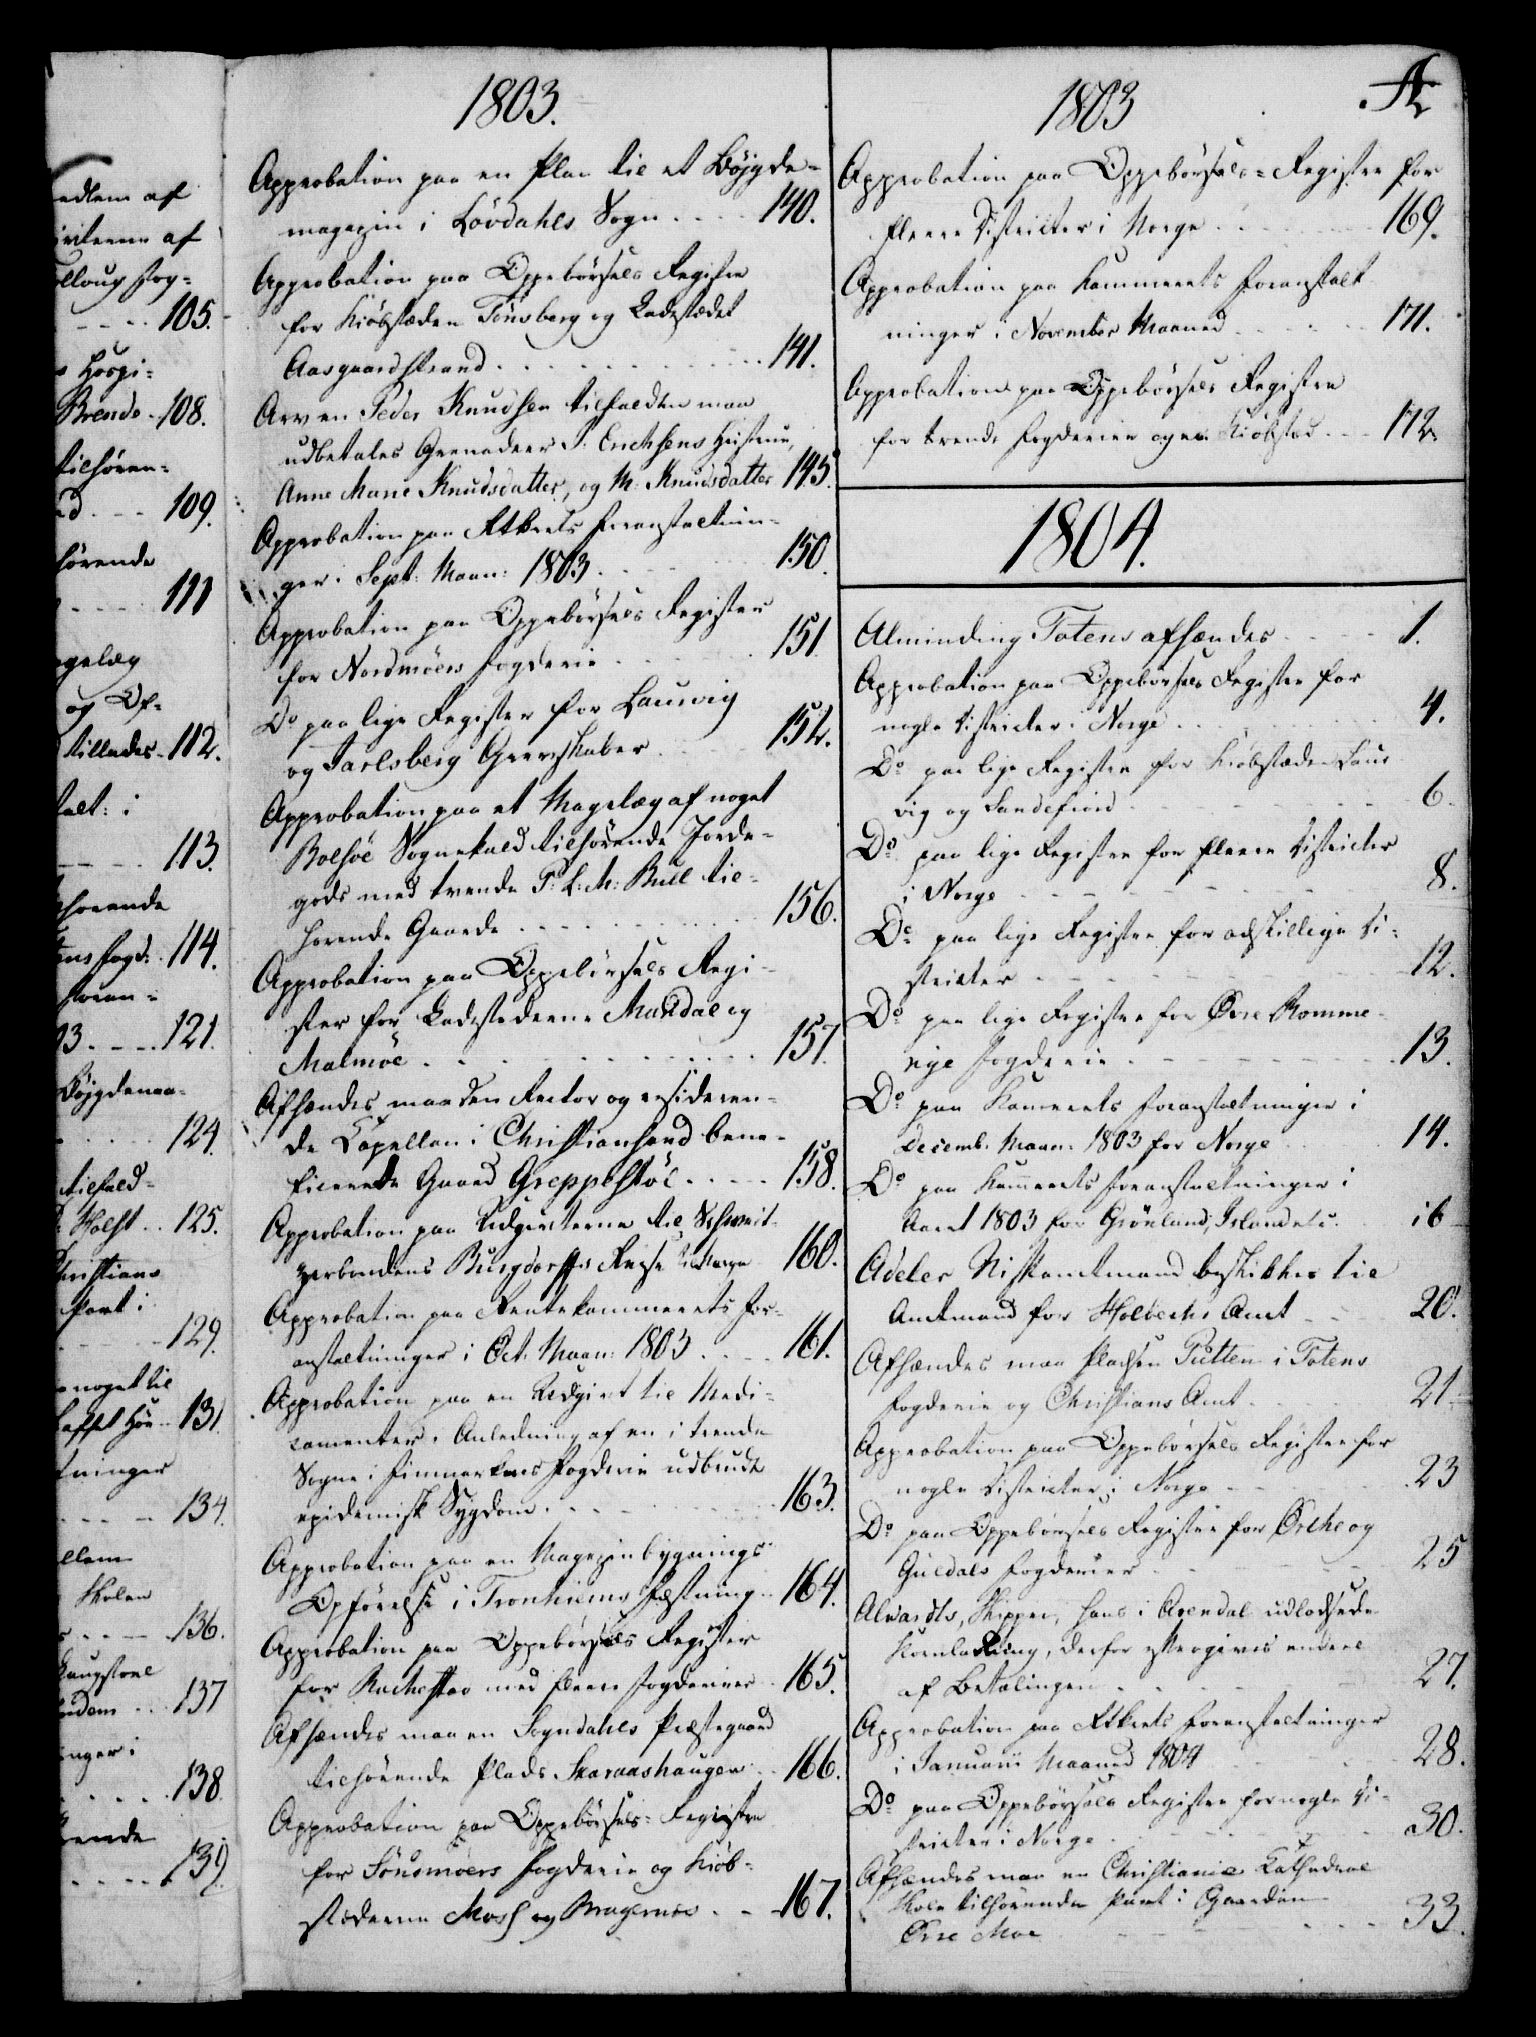 edlem af
iviterne af
olloug Fog=
105.
s Hospi=
Brende 108.
tilhören=
d 109.
hörende
111
ogelæg
og Of=
tillades 112.
talt: i
113.
horende
114.
horen=
03. 121.
Böjgdema=
124.
tilfald=
Holst 125.
Christians
Part i
129.
noget til
131
tninger
134.
ellem
Skolen
136.
137
nger i
138.
ende
139.
1803.
Approbation paa en Plan til et Böjgde=
magazin i Lövdahls Sogn 140.
Approbation paa Oppebörsels Register
for Kiöbstæden Tönsberg og Ladestædet
Aasgaardstrand 141.
Arv en Peder Knudsen tilfalden maa
udbetales Grenadeer J. Erichsens Hustrue,
Anne Marie Knudsdatter, og M. Knudsdatter 145.
Approbation paa Rtkrets Foranstaltnin=
ger i Sept: Maan: 1803 150.
Approbation paa Oppebörsels Register
for Nordmöers Fogderie 151.
Do paa lige Register for Laurvig
og Jarlsberg Grevskaber 152.
Approbation paa et Magelæg af noget
Bolsöe Sognekald tilhörende Jorde=
gods med trende P: L: M: Bull til=
hörende Gaarde 156.
Approbation paa Oppebörsels Regi=
ster for Ladestederne Mandal og
Malmöe 157.
Afhændes maa den Rector og resideren=
de Capellan i Christiansand bene=
ficerede Gaard Greppestöl 158.
Approbation paa Udgivterne til Schweit=
zerbondens Burgdorffs Reise til Norge 160.
Approbation paa Rentekammerets For=
anstaltninger i Oct: Maan: 1803 161.
Approbation paa en Udgivt til Medi=
camenter i Anledning af en i trende
Sogne i Finmarkens Fogderie udbrudt
epidemisk Sygdom 163.
Approbation paa en Magazinbygnings
Opförelse i Tronhiems Fæstning 164.
Approbation paa Oppebörsels Register
for Kudestad med flere Fogderier 165.
Afhændes maa en Sogndahls Præstegaard
tilhörende Plads Skaraashaugen 166.
Approbation paa Oppebörsels=Register
for Söndmöers Fogderie og Kiöb=
stæderne Moss og Bragernæs 167.
1803
A
Approbation paa Oppebörsels=Register for
flere Districter i Norge 169.
Approbation paa Kammerets Foranstalt
ninger i November Maaned 171.
Approbation paa Oppebörsels Register
for trende Fogderier og en Kiöbstad 172.
1804.
Alminding Totens afhændes 1.
Approbation paa Oppebörsels Register for
nogle Districter i Norge 4.
Do paa lige Register for Kiöbstæden Laur
vig og Sandefiord 6.
Do paa lige Register for flere Districter
i Norge 8.
Do paa lige Register for adskillige Di=
stricter 12.
Do paa lige Register for Övre Romme=
rige Fogderie 13.
Do paa Kamerets Foranstaltninger i
Decemb. Maan. 1803 for Norge 14.
Do paa Kamerets Foranstaltninger i
Aaret 1803 for Grönland, Island &c. 16
Adeler Stiftamtmand beskikkes til
Amtmand for Holbechs Amt 20.
Afhændes maa Pladsen Putten i Totens
Fogderie og Christians Amt 21
Approbation paa Oppebörsels Register for
nogle Districter i Norge 23
Do paa Oppebörsels Register for Örche og
Guldals Fogderier 25
Alvardts, Skipper, hans i Arendal udlodsede
Kornladning, derfor eftergives endeel
af Betalingen 27.
Approbation paa Rtkrets Foranstaltninger
i Januarii Maaned 1804 28.
Do paa Oppebörsels Register for nogle Di=
stricter i Norge 30.
Afhændes maa en Christianiæ Kathedral
Skole tilhörende Part i Gaarden
Övre Moe 33.